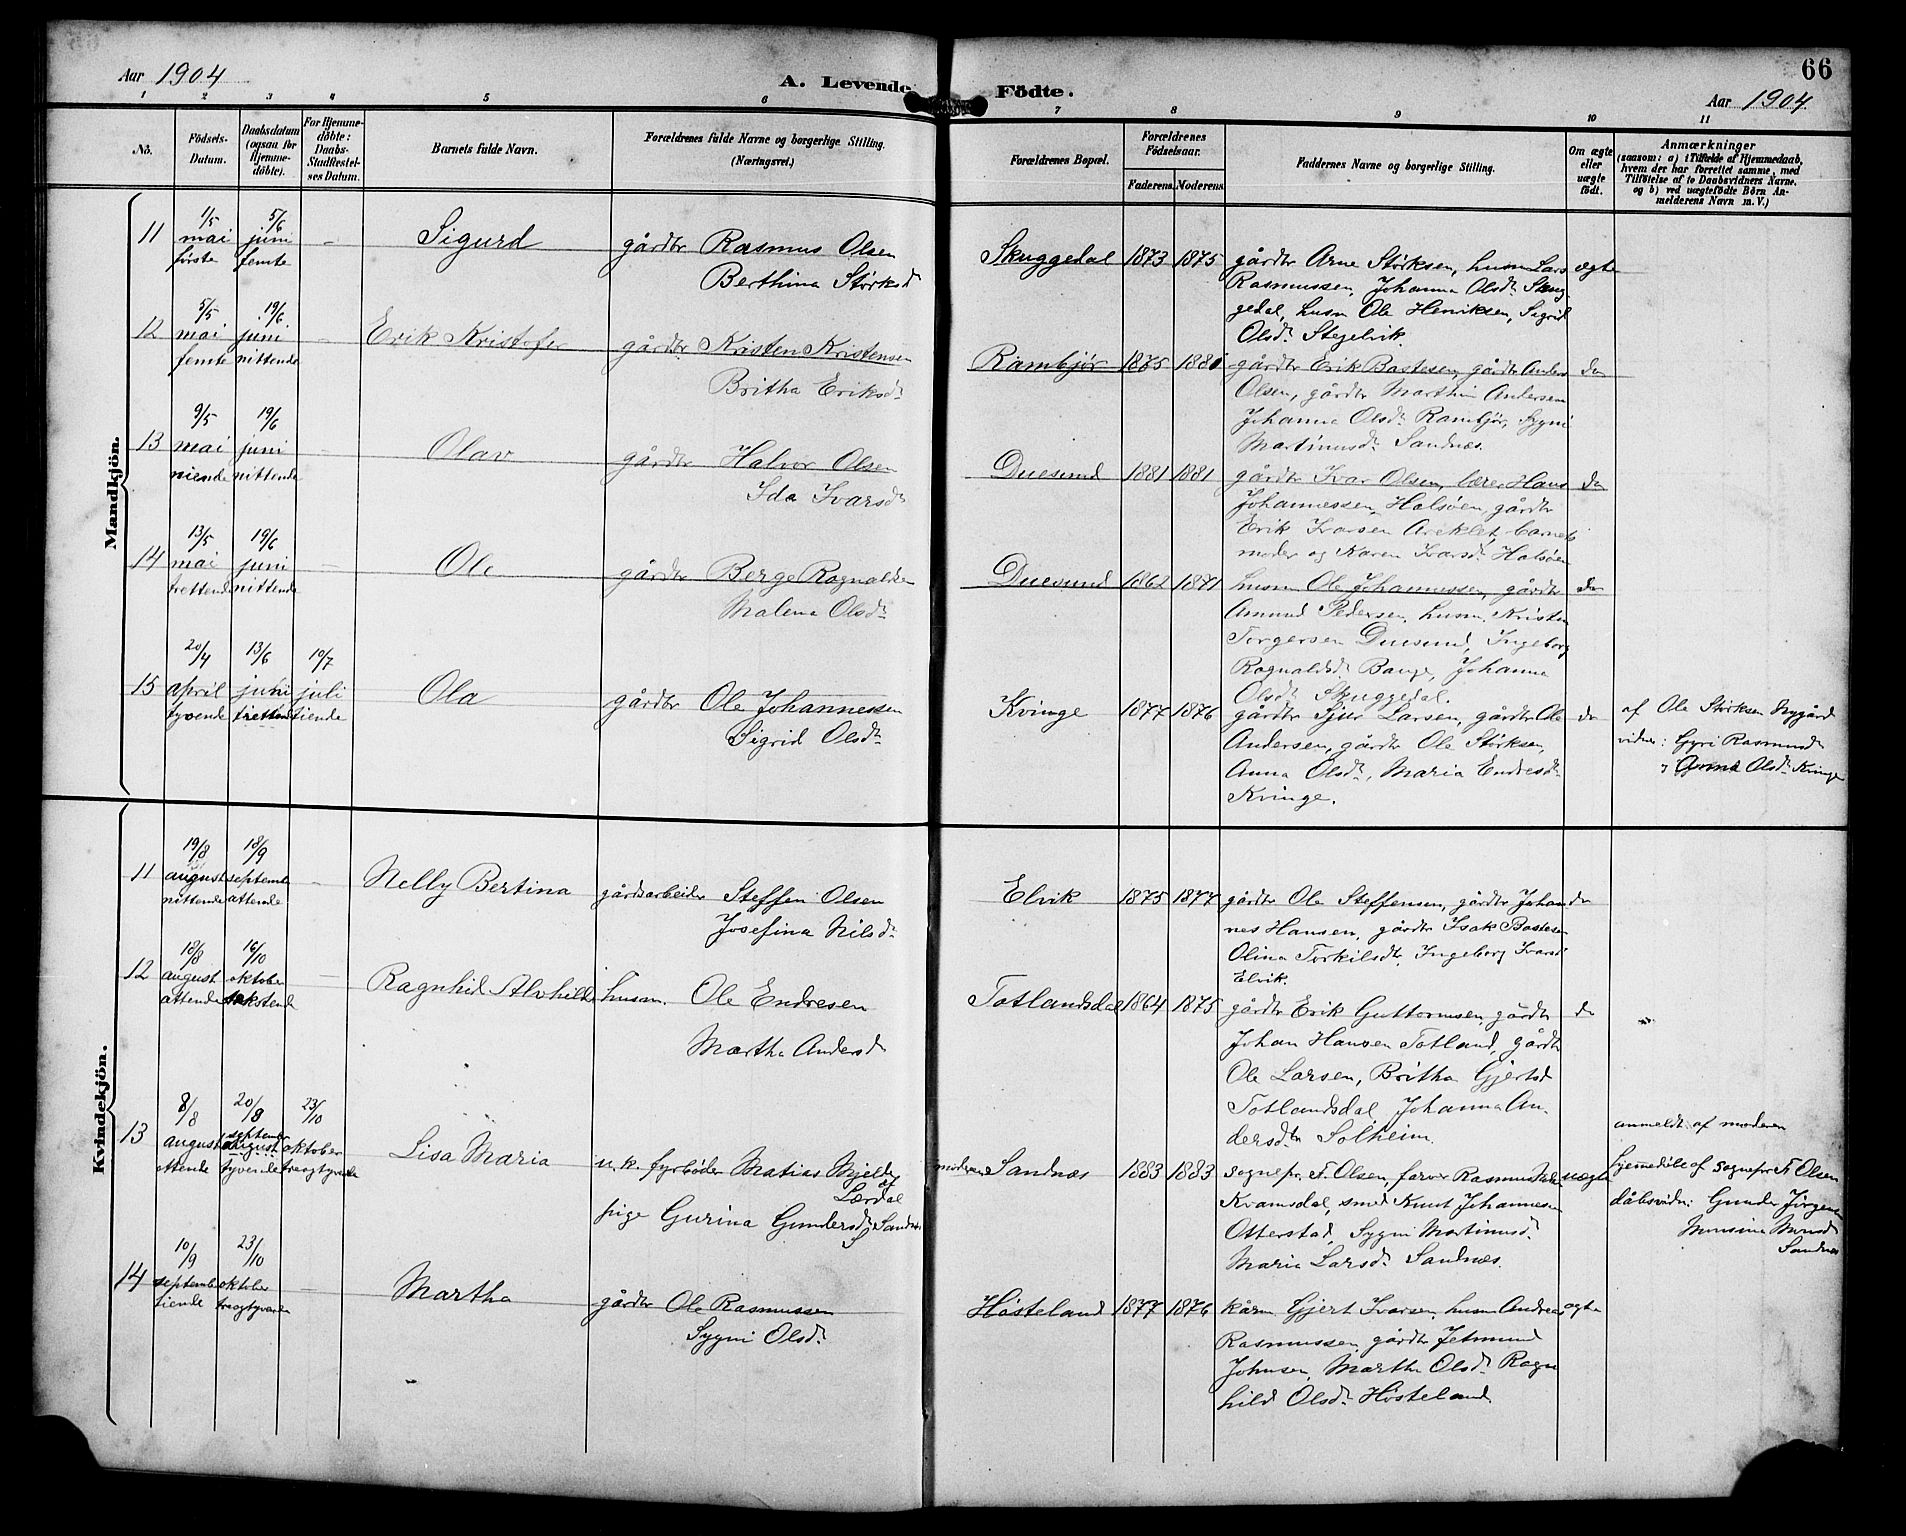 66
Aar 1904
A. Levende Födte.
Aar 1904.
1 2 3 4 5 6 7 8 9 10 11
No.
Födsels-Datum.
Daabsdatum (ogsaa for Hjemme-döbte).
For Hjemme-döbte: Daabs-Stadfæstel-ses Datum.
Barnets fulde Navn.
Forældrenes fulde Navne og borgerlige Stilling.
(Næringsvei.)
Forældrenes Bopæl.
Forældrenes Födselsaar.
Faderens. Moderens.
Faddernes Navne og borgerlige Stilling.
Om ægte eller uægte födt.
Anmærkninger
(saasom: a) i Tilfælde af Hjemmedaab,
hvem der har forrettet samme, med
Tilföielse af to Daabsvidners Navne.
og b) ved uægtefödte Börn An-
melderens Navn m. V.)
Mandkjön.
11 1/5 mai første 5/6 juni femte - Sigurd gårdbr Rasmus Olsen
Berthina Størksd
Skuggedal 1873 1875 gårdbr Arne Størksen, husm Lars ægte
Rasmussen, Johanna Olsdr Skug
gedal, husm Ole Henriksen, Sigrid
Olsdr Stegelvik.
12 5/5 mai femte 19/6 juni nittende - Erik Kristofer gårdbr Kristen Kristensen
Britha Eriksdr
Rambjør 1875 1880 gårdbr Erik Bastesen, gårdbr Anders do
Olsen, gårdbr Marthin Andersen
Johanna Olsdr Rambjør, Sygni
Martinusdr Sandnæs.
13 9/5 mai niende 19/6 juni nittende - Olav gårdbr Halvor Olsen
Ida Ivarsdr
Duesund 1881 1881 gårdbr Ivar Olsen, lærer Hans do
Johannessen, Halsøen, gårdbr
Erik Ivarsen Areklet, barnets
moder og Karen Ivarsdr Halsøen
14 13/5 mai trettende 19/6 juni nittende - Ole gårdbr Berge Ragnalds
Malena Olsdr
Duesund 1862 1871 husm Ole Johannessen, gårdbr do
Amund Pedersen, husm. Kristen
Torgersen Duesund, Ingeborg
Ragnaldsdr Bauge, Johanna
Olsdr Skuggedal.
15 20/4 april tyvende 13/6 juni trettende 10/7 juli tiende Ola gårdbr Ole Johannessen
Sigrid Olsdr
Kvinge 1877 1876 gårdbr Sjur Larsen, gårdbr Ole do
Andersen, gårdbr Ole Størksen,
Anna Olsdr, Maria Endresdr
Kvinge.
af Ole Størksen Nygård
vidner: Gyri Rasmusdr
Anna Olsdr Kvinge
Kvindekjön.
11 19/8 august nittende 18/9 septembr attende - Nelly Bertina gårdsarbeider Steffen Olsen
Josefina Nilsdr
Elvik 1875 1877 gårdbr Ole Steffensen, gårdbr Johan do
nes Hansen, gårdbr Isak Bastesen
Olina Torkilsdr, Ingeborg Ivarsd
Elvik.
12 18/8 august attende 16/10 oktober sekstende - Ragnhild Alvhilde husm. Ole Endresen
Martha Andersd
Totlandsdal 1864 1875 gårdbr Erik Guttormsen, gårdbr do
Johan Hansen Totland, gårdbr
Ole Larsen, Britha Gjertsd
Totlandsdal, Johanna An-
dersdtr Solheim.
13 8/8 august ottende 20/8 september august tyvende 23/10 oktober treogtyvende Lisa Maria u.k. fyrbøder Matias Mjelde
af Lærdal
pige Gurina Gundersdr, Sandnæs
moderen Sandnæs 1883 1883 sognepr. F. Olsen, farver Rasmus uægte
Kvamsdal, smed Knut Johannesen
Otterstad, Sygni Martinusdr
Maria Larsdr Sandnæs.
anmeldt af moderen
hjemmedøbt af sognepr F. Olsen
dåbsvidn: Gunder Jørgensen
Monsine Monsd
Sandnæs
14 10/9 septembr tiende 23/10 oktober treogtyvende - Martha gårdbr Ole Rasmussen
Sygni Olsdr
Høsteland 1877 1876 kårm Gjert Ivarsen, husm Andreas ægte
Rasmussen, gårdbr Jetmund
Johnsen, Martha Olsdr Ragn
hild Olsdr Høsteland.